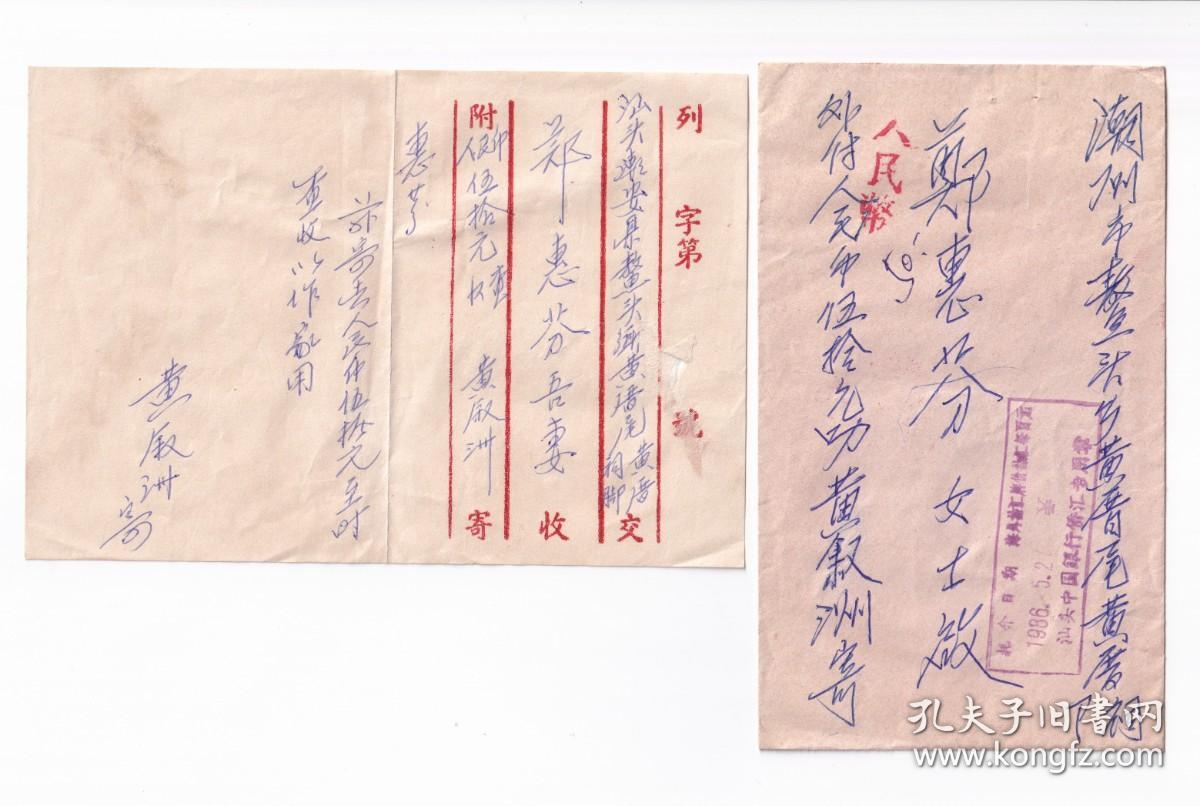 潮州市鳌头乡黄厝尾黄厝祠
郑惠芬女士啟
人民幣
外付人民币伍拾元 黄叙洲寄
1986.5.2
汕头中国銀行僑汇专用章
列字第號
汕头潮安县鳌头乡黄厝尾黄厝祠脚交
郑惠芬吾妻收
附人民币伍拾元 查收 黄叙洲寄
惠芬
兹寄去人民币伍拾元至时
查收以作家用
黄叙洲寄
孔夫子旧书网
www.kongfz.com